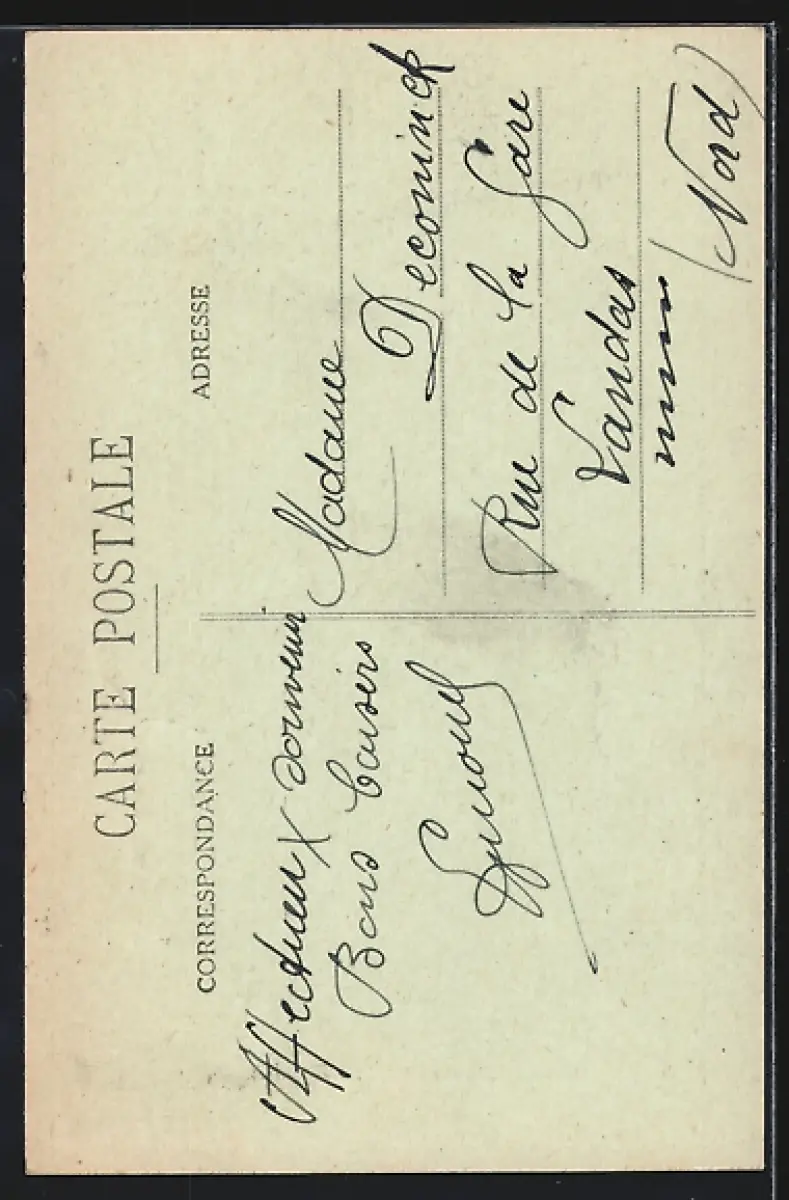 CARTE POSTALE
CORRESPONDANCE
Affectueux souvenir
Bons baisers
ADRESSE
Madame
Decominck
Rue de la Gare
Landas
(Nord)